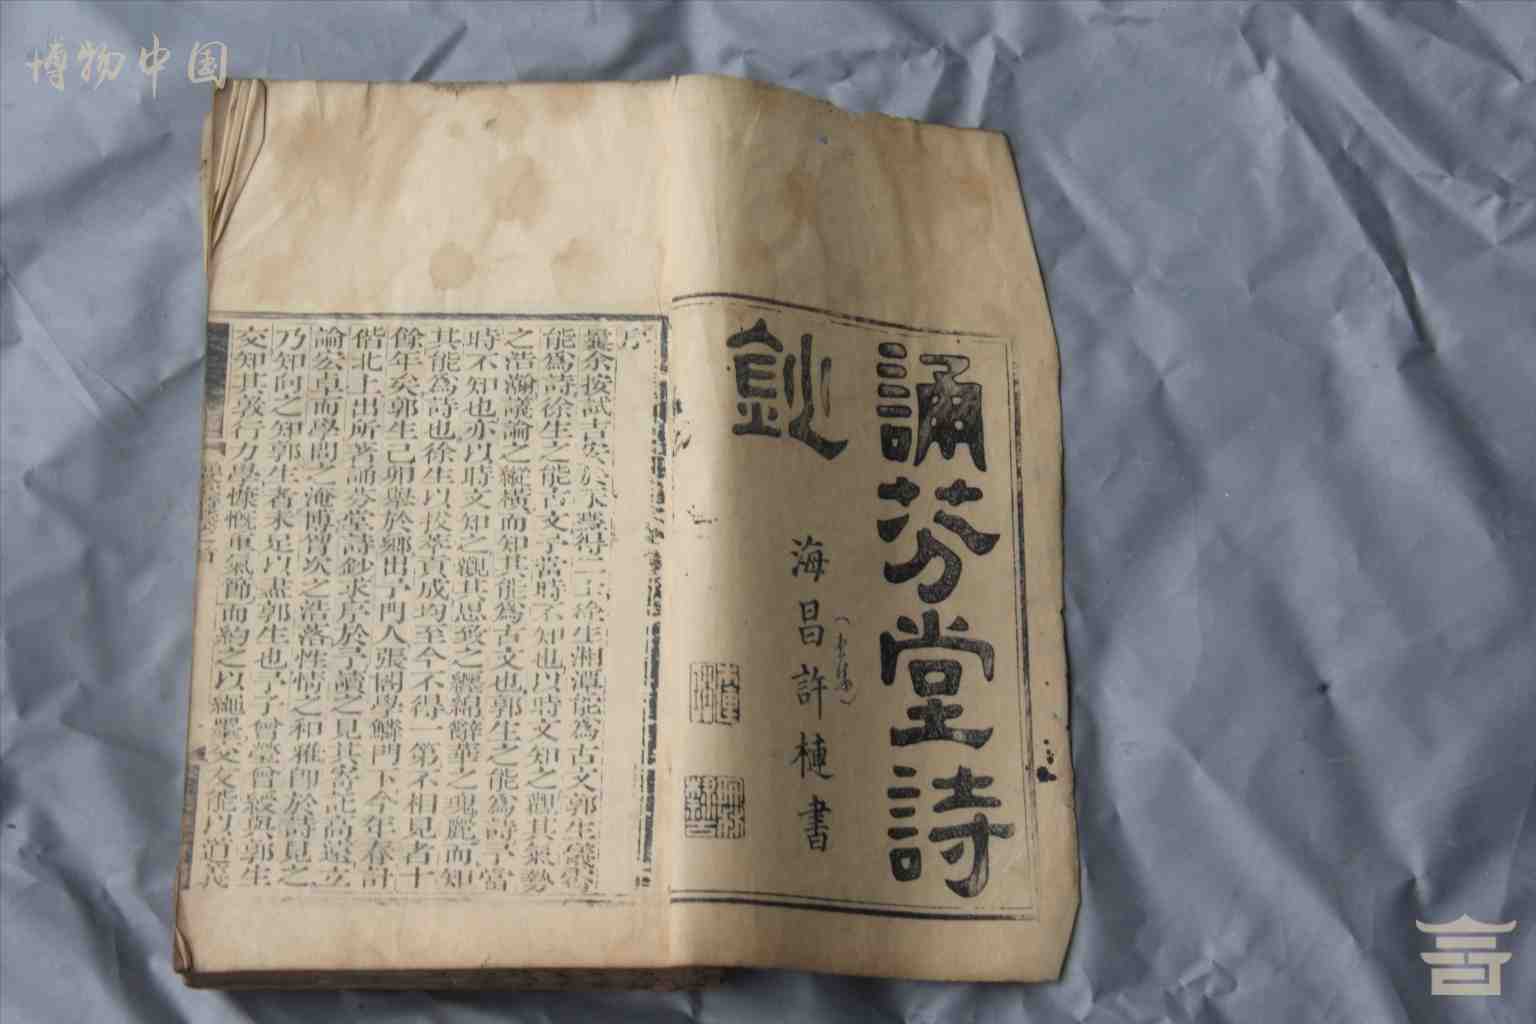 博物中国
誦芬堂詩
鈔
海昌許槤書
序
曩余按試吉安於下
得二生徐生湘潭能為古文郭生儀霄
能為詩徐生之能古文予當時不知也以時文知之觀其氣勢
之浩瀚議論之縱橫而知其能為古文也郭生之能為詩予當
時不知也亦以時文知之觀其思致之纏綿辭華之瑰麗而知
其能為詩也徐生以拔萃貢成均至今不得一第不相見者十
餘年矣郭生己卯舉於鄉出予門人張閣學鱗門下今年春計
偕北上出所著誦芬堂詩鈔求序於予讀之見其寄託高遠立
論宏卓而學問之淹博胷次之浩落性情之和雅卽於詩見之
乃知向之知郭生者未足以盡郭生也予子曾瑩曾綬與郭生
交知其敦行力學慷慨重氣節而約之以繩墨交友能以道義